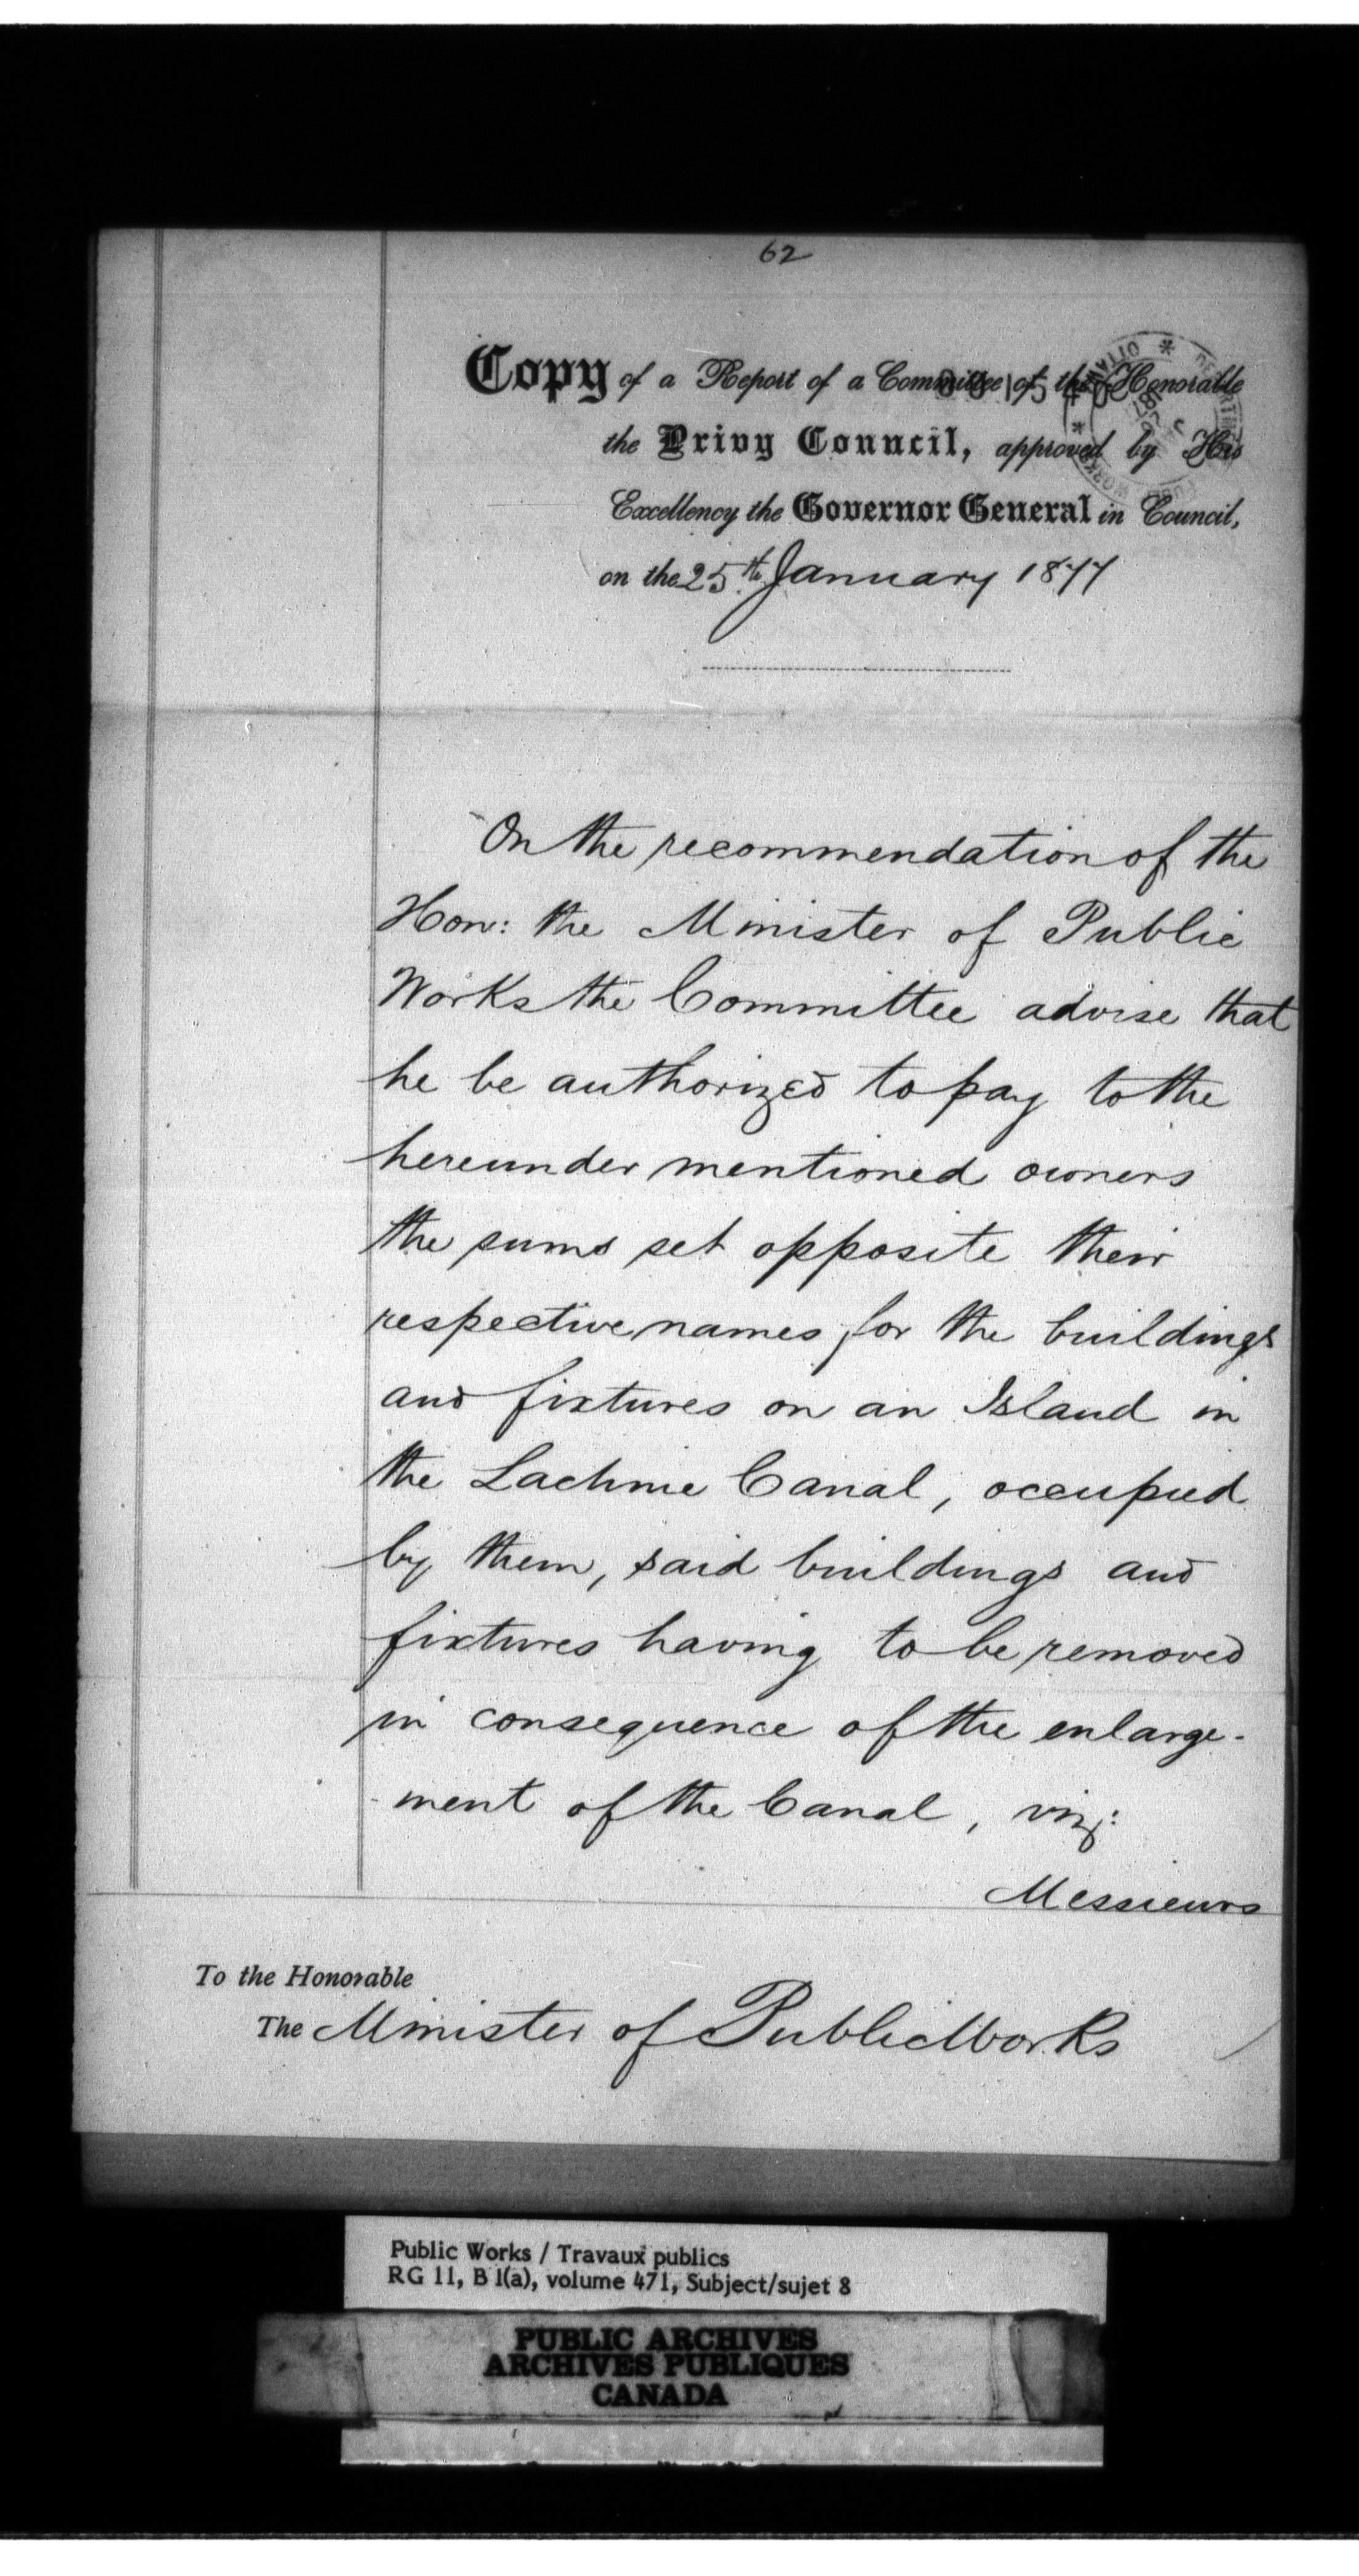 62
Copy of a Report of a Committee of the Honorable
the Privy Council, approved by His
Excellency the Governor General in Council,
on the 25th January 1877
On the recommendation of the
Hon: the Minister of Public
Works the Committee advise that
he be authorized to pay to the
hereunder mentioned owners
the sums set opposite their
respective names for the buildings
and fixtures on an Island in
the Lachine Canal, occupied
by them, said buildings and
fixtures having to be removed
in consequence of the enlarge-
ment of the Canal, viz:
Messieurs
To the Honorable
The Minister of Public Works
Public Works / Travaux publics
RG 11, B 1(a), volume 471, Subject/sujet 8
PUBLIC ARCHIVES
ARCHIVES PUBLIQUES
CANADA